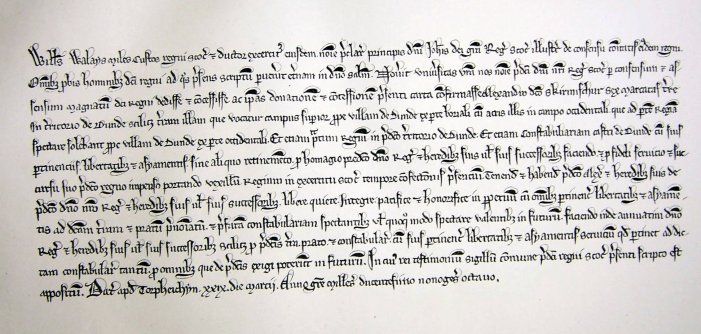 Willẽs Walays miles Custos regni Scoc̃ ⁊ ductor exercituũ eiusdem. noĩe p̃clari principis dñi Joh̃is dei grã Reg̃ Scoc̃ illustr̃ de consensu cõitatis eiusdem regni.
Omnib; p̃bis hominib; dc̃i regni ad q̃s p̃sens scriptũ puen̾it et̾nam in dño salt̃m. Nouit̾ uniũsitas vr̃a nos noĩe p̃dc̃i dñi nr̃i Reg̃ Scoc̃ p consensum ⁊ as-
sensum magnatũ dc̃i regni dedisse ⁊ concessisse ac ip̃as donationẽ ⁊ concessionẽ p̃senti carta confirmasse Alexandro dc̃o Skirmischur sex marcatas tr̃e
in t̾ritorio de Dunde scilic̃ tr̃am illam que vocatur campus sup̾ior prope villam de Dunde ex pte boriali cũ acris illis in campo occidentali que ad ptẽ Regiã
spectare solebant prope villam de Dunde ex pte occidentali. Et eciam pratum Regium in p̃dc̃o t̾ritorio de Dunde. Et eciam Constabulariam castri de Dunde cũ suis
pertinenciis lib̾tatib; ⁊ aysiamentis sine aliquo retinemento. p homagio predc̃o dño Reg̃ ⁊ heredib; suis vl̃ suis successorib; faciendo. ⁊ p fideli seruicio ⁊ suc-
cursu suo p̃dc̃o regno impenso portando vexillum Regium in exercitu Scoc̃ tempore confectionis p̃sencium. Tenend̃ ⁊ habend̃ p̃dc̃o Alex̃ ⁊ heredib; suis de
p̃dc̃o dño nr̃o Reg̃ ⁊ heredib; suis vl̃ suis successorib;. libere quiete integre pacifice ⁊ honorifice in ppetuum cũ omnib; pertinenc̃ lib̾tatib; ⁊ aysiamen-
tis ad dictam tr̃am ⁊ pratũ p̃nominatũ. ⁊ p̃fatã constabulariam spectantib; vl̃ quoq̃ modo spectare valentib; in futurũ. Faciendo inde annuatim dño
Reg̃ ⁊ heredib; suis vl̃ suis successorib; scilic̃ p p̃dc̃is tr̃a prato ⁊ constabular̃ cũ suis pertinenc̃ lib̾tatib; ⁊ aysiamentis seruiciũ qd̃ p̾tinet ad dic-
tam constabular̃ tantũ p omnib; que de p̃dc̃is exigi pot̾unt in futurum. In cui; rei testimonium sigillũ commune p̃dc̃i regni Scoc̃ p̃senti scripto est
appositum. Dat̃ apd̃ Torpheichyn. xxix. die marcij. Anno gr̃e Milles̃ ducentesimo nonoges̃ octauo.